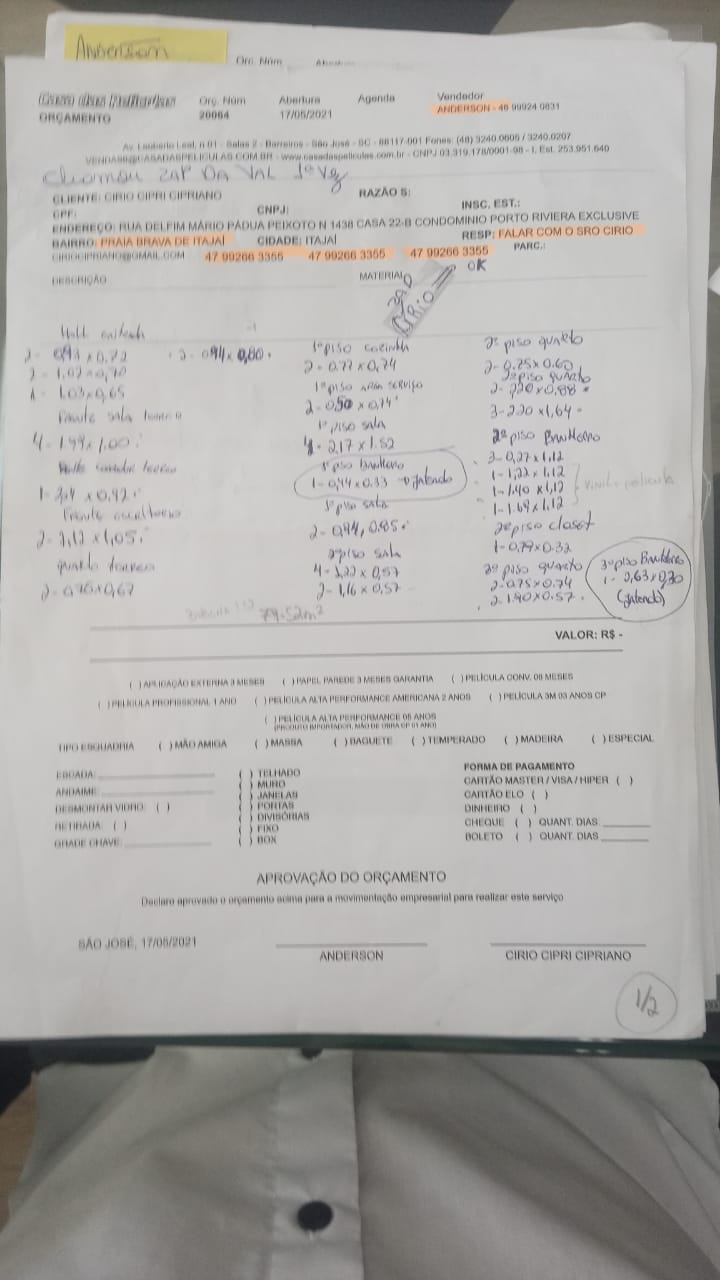 Anderson
Orç. Núm
Casa das Películas Orç. Núm Abertura Agenda Vendedor
ORÇAMENTO 20064 17/05/2021 ANDERSON - 48 99924 0831
Av. Leoberto Leal, n 01 - Salas 2 - Barreiros - São José - SC - 88117-001 Fones: (48) 3240.0606 / 3240.0207
VENDAS@CASADASPELICULAS.COM.BR - www.casadaspeliculas.com.br - CNPJ 03.319.178/0001-98 - I. Est. 253.951.640
Chamou ZAP DA VAL 1ª Vez
CLIENTE: CIRIO CIPRI CIPRIANO RAZÃO S:
CPF: CNPJ: INSC. EST.:
ENDEREÇO: RUA DELFIM MÁRIO PÁDUA PEIXOTO N 1438 CASA 22-B CONDOMINIO PORTO RIVIERA EXCLUSIVE
BAIRRO: PRAIA BRAVA DE ITAJAÍ CIDADE: ITAJAÍ RESP: FALAR COM O SRO CIRIO
CIRIOCIPRIANO@GMAIL.COM 47 99266 3355 47 99266 3355 47 99266 3355 PARC.:
OK
DESCRIÇÃO MATERIAL
ZAP
CIRIO
Hall entrada
2- 0,93 x 0,72 2- 0,94 x 0,80
1,03 x 0,65
4- 1.99 x 1.00
2- 2,12 x 1,05
2- 0,76 x 0,67
1º piso cozinha
2- 0.77 x 0,74
1º piso area serviço
1º piso sala
4- 2,17 x 1.52
1º piso Banheiro
1- 0,44 x 0.33 jateado
1º piso sala
2- 0,94, 0,85
2º piso sala
4- 1,22 x 0,57
2- 1,16 x 0,57
2º piso quarto
2- 0.75 x 0.60
2º piso quarto
2- 2,20 x 0,88
3- 2.20 x 1,64
2º piso Banheiro
3- 0,27 x 1,12
1- 1,22 x 1.12
1- 1.40 x 1,12
1- 1.69 x 1,12
película
2º piso closet
1- 0,79 x 0.32
2º piso quarto
2- 0.75 x 0.74
2- 1.90 x 0.57
3º piso Banheiro
1- 2,63 x 0,70
(jateado)
79.52m²
VALOR: R$ -
( ) APLICAÇÃO EXTERNA 3 MESES ( ) PAPEL PAREDE 3 MESES GARANTIA ( ) PELÍCULA CONV. 06 MESES
( ) PELICULA PROFISSIONAL 1 ANO ( ) PELÍCULA ALTA PERFORMANCE AMERICANA 2 ANOS ( ) PELÍCULA 3M 03 ANOS CP
( ) PELÍCULA ALTA PERFORMANCE 05 ANOS
(PRODUTO IMPORTADOR, MÃO DE OBRA CP 01 ANO)
TIPO ESQUADRIA ( ) MÃO AMIGA ( ) MASSA ( ) BAQUETE ( ) TEMPERADO ( ) MADEIRA ( ) ESPECIAL
ESCADA: ( ) TELHADO
ANDAIME: ( ) MURO
DESMONTAR VIDRO: ( ) ( ) JANELAS
RETIRADA: ( ) ( ) PORTAS
GRADE CHAVE: ( ) DIVISÓRIAS
( ) FIXO
( ) BOX
FORMA DE PAGAMENTO
CARTÃO MASTER / VISA / HIPER ( )
CARTÃO ELO ( )
DINHEIRO ( )
CHEQUE ( ) QUANT. DIAS:
BOLETO ( ) QUANT. DIAS
APROVAÇÃO DO ORÇAMENTO
Declaro aprovado o orçamento acima para a movimentação empresarial para realizar este serviço
SÃO JOSÉ, 17/05/2021
ANDERSON CIRIO CIPRI CIPRIANO
1/2